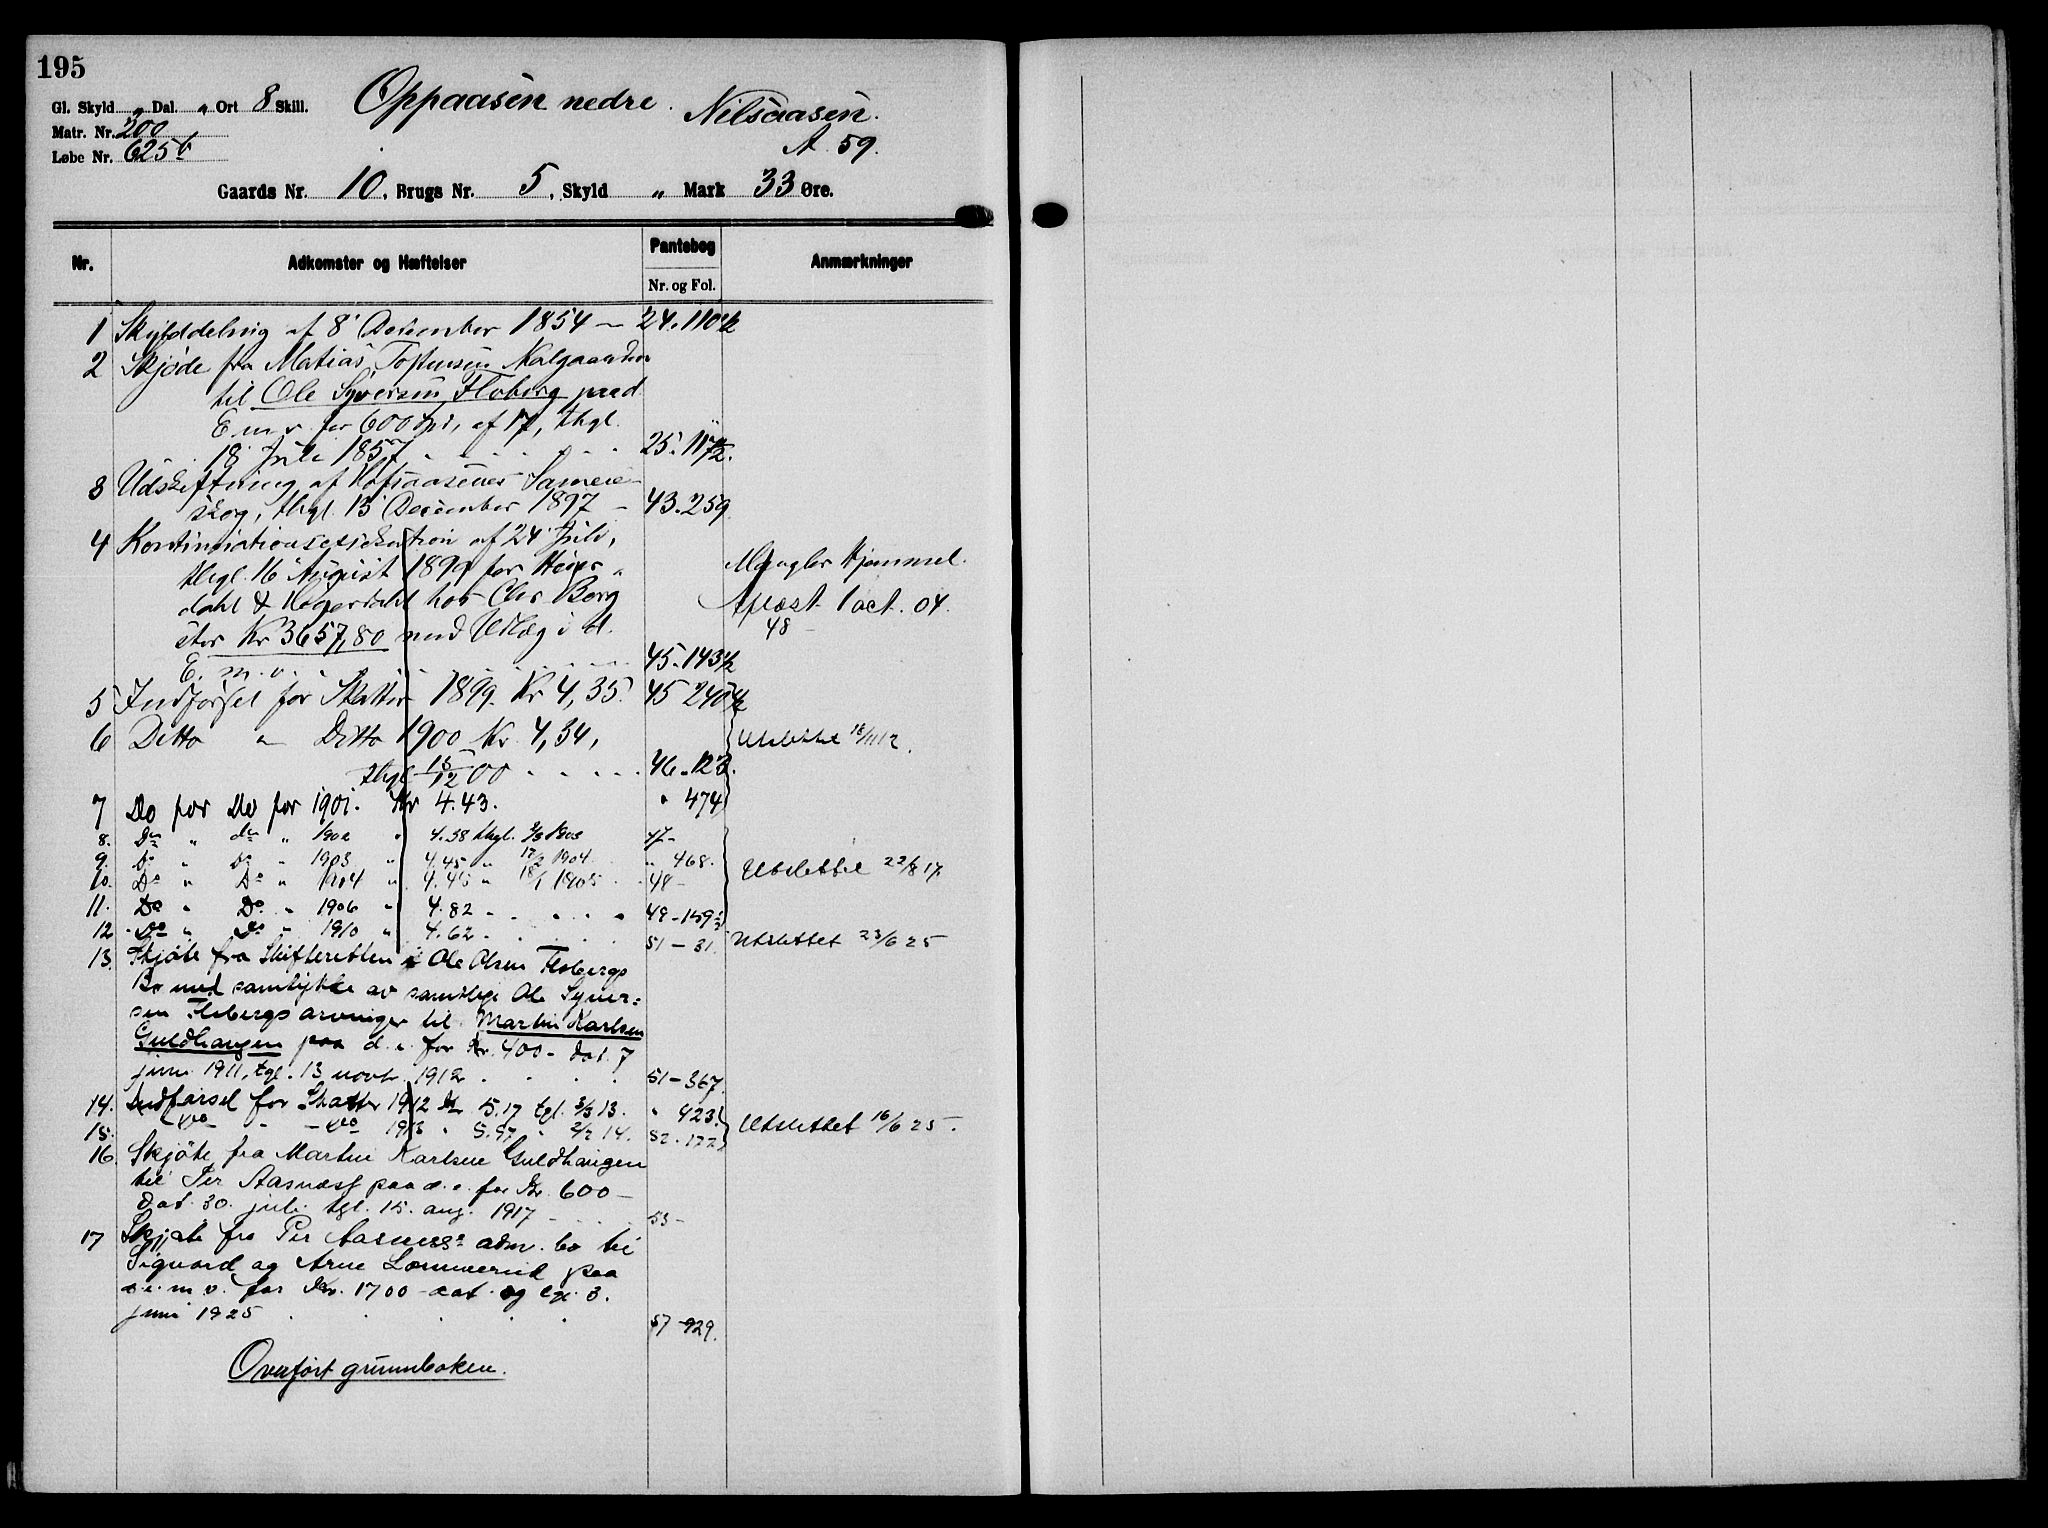 195
Gl. Skyld „ Dal. „ Ort 8 Skill. Oppaasen nedre. Nilsaasen.
Matr. Nr. 200
Løbe Nr. 625b A. 59.
Gaards Nr. 10, Brugs Nr. 5, Skyld „ Mark 33 Øre.
Nr. Adkomster og Hæftelser Pantebog Anmærkninger
Nr. og Fol.
1 Skylddeling af 8 December 1854 — 24.110½
2 Skjøde fra Matias Tostensen
til Ole Syversen Floberg paa d.
E. m. v. for 600 Spd, af 17, thgl.
18 Juli 1857 25.
3 Udskiftning af Sameie
skog, thgl. 13 December 1897 — 43.259
4 af 24 Juli,
thgl. 16 August 1899 for Heiger- Mangler Hjemmel.
dahl & hos Ole Berg 1 oct. 04.
stor Kr 3657,80 med Udlæg i d. 48 –
E. m. v. 45.143½
5 Indførsel for Skatter 1899. Kr 4,35. 45 240½
6 Ditto „ Ditto 1900 Kr. 4,34, Utslettet 18/11 12.
thgl 15/12 00 46.123.
7 Do for Do for 1901. Kr 4.43. „ 474
8. Do „ do „ 1902 „ 4.58 thgl. 1903 47–
9. Do „ Do „ 1903 „ 4.45 „ 17/2 1904. „ 468. Utslettet 22/8 17.
10. Do „ Do „ 1904 „ 4.45 „ 18/1 1905 48–
11. Do „ Do „ 1906 „ 4.82 49–159½
12. Do „ Do „ 1910 „ 4.62 51–31. Utslettet 23/6 25
13. Skjøte fra Skifteretten i Ole Olsen Flobergs
Bo med samtykke av samtlige Ole Syver=
sen Flobergs arvinger til Martin Karlsen
Guldhaugen paa d. e. for Kr. 400– dat. 7
juni 1911, tgl. 13 novbr. 1912 51–367.
14. Indførsel for Skatter 1912 Kr 5.17 tgl. 3/3 13. „ 423. Utslettet 16/6 25.
15. – Do – – Do 1913 „ 5.57 „ 2/2 14. 52.122
16. Skjøte fra Martin Karlsen Guldhaugen
til Per Aasnæss paa d. e. for Kr. 600–
Dat. 30. juli tgl. 15. aug. 1917 53–
17 Skjøte fra Per Aasness' adm. bo til
Sigvard og Arne Lommerud paa
d. e. m. v. for Kr. 1700 – dat. og tgl. 3.
juni 1925 57–929.
Overført grunnboken.